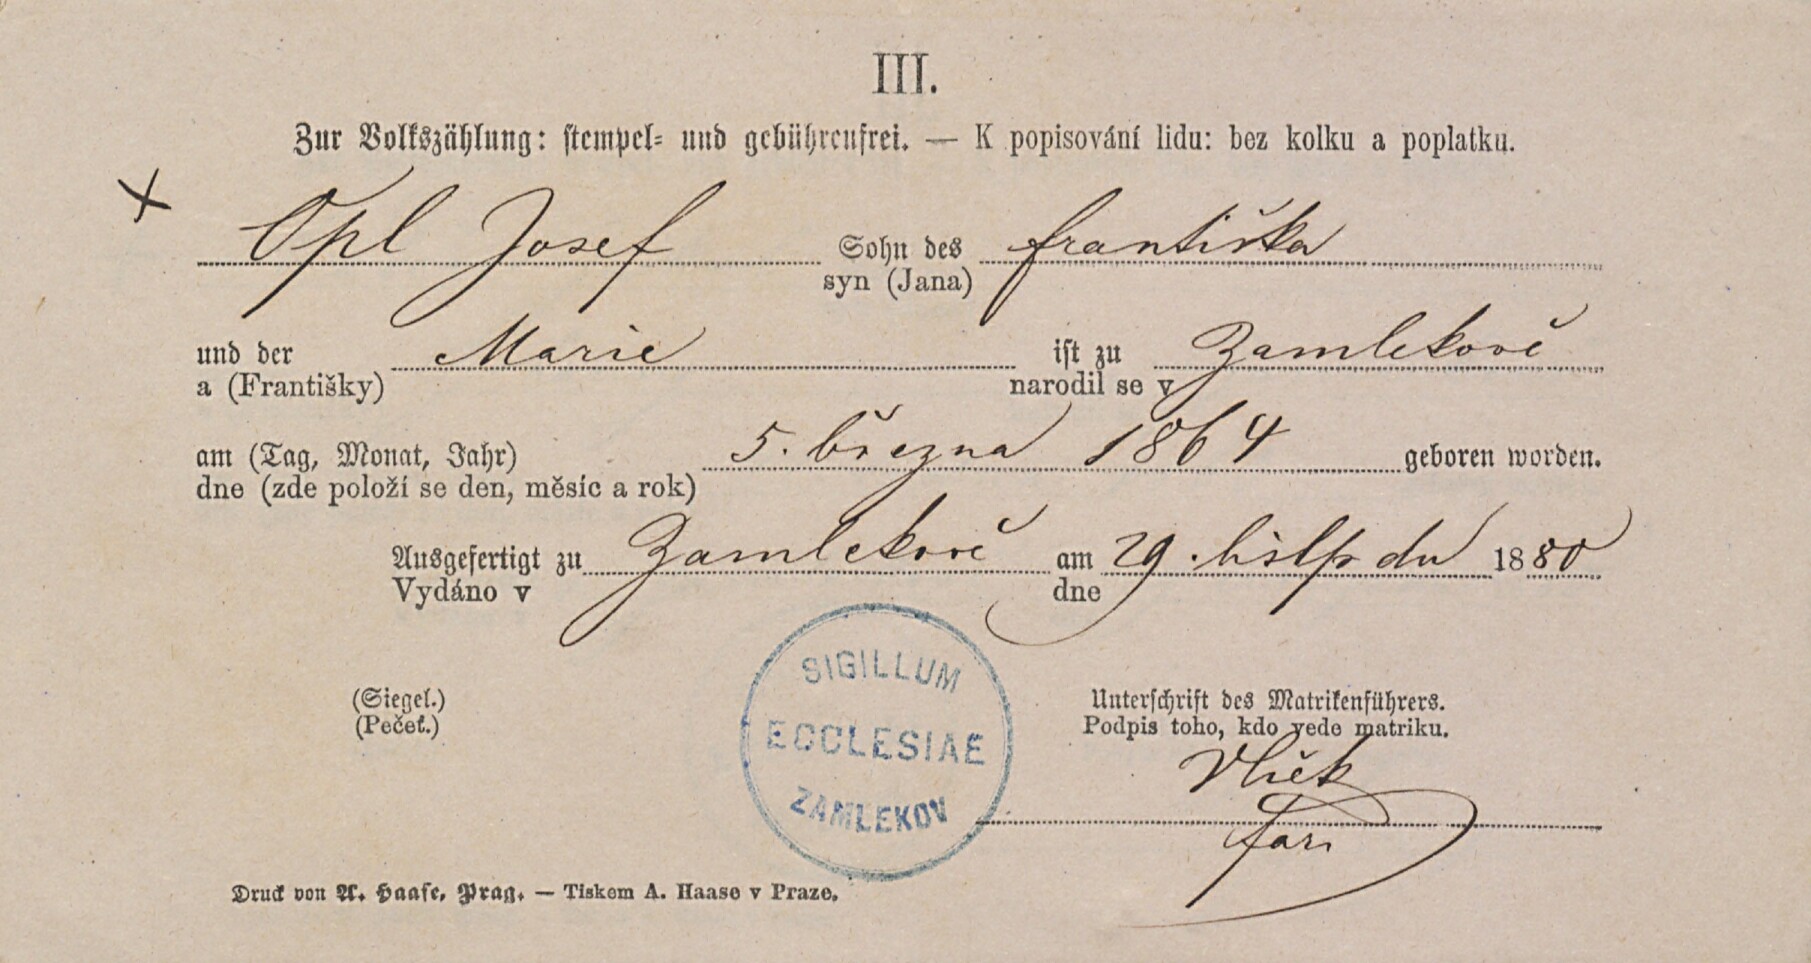 III.
Zur Volkszählung: stempel- und gebührenfrei. — K popisování lidu: bez kolku a poplatku.
Opl Josef Sohn des Františka
syn (Jana)
und der Marie ist zu Zamlekově
a (Františky) narodil se v
am (Tag, Monat, Jahr) 5. března 1864 geboren worden.
dne (zde položí se den, měsíc a rok)
Ausgefertigt zu Zamlekově am 29. listpdu 1880
Vydáno v dne
SIGILLUM
ECCLESIAE
ZAMLEKOV
(Siegel.)
(Pečeť.)
Unterschrift des Matrikenführers.
Podpis toho, kdo vede matriku.
Vlček
Druck von A. Haase, Prag. — Tiskem A. Haase v Praze.